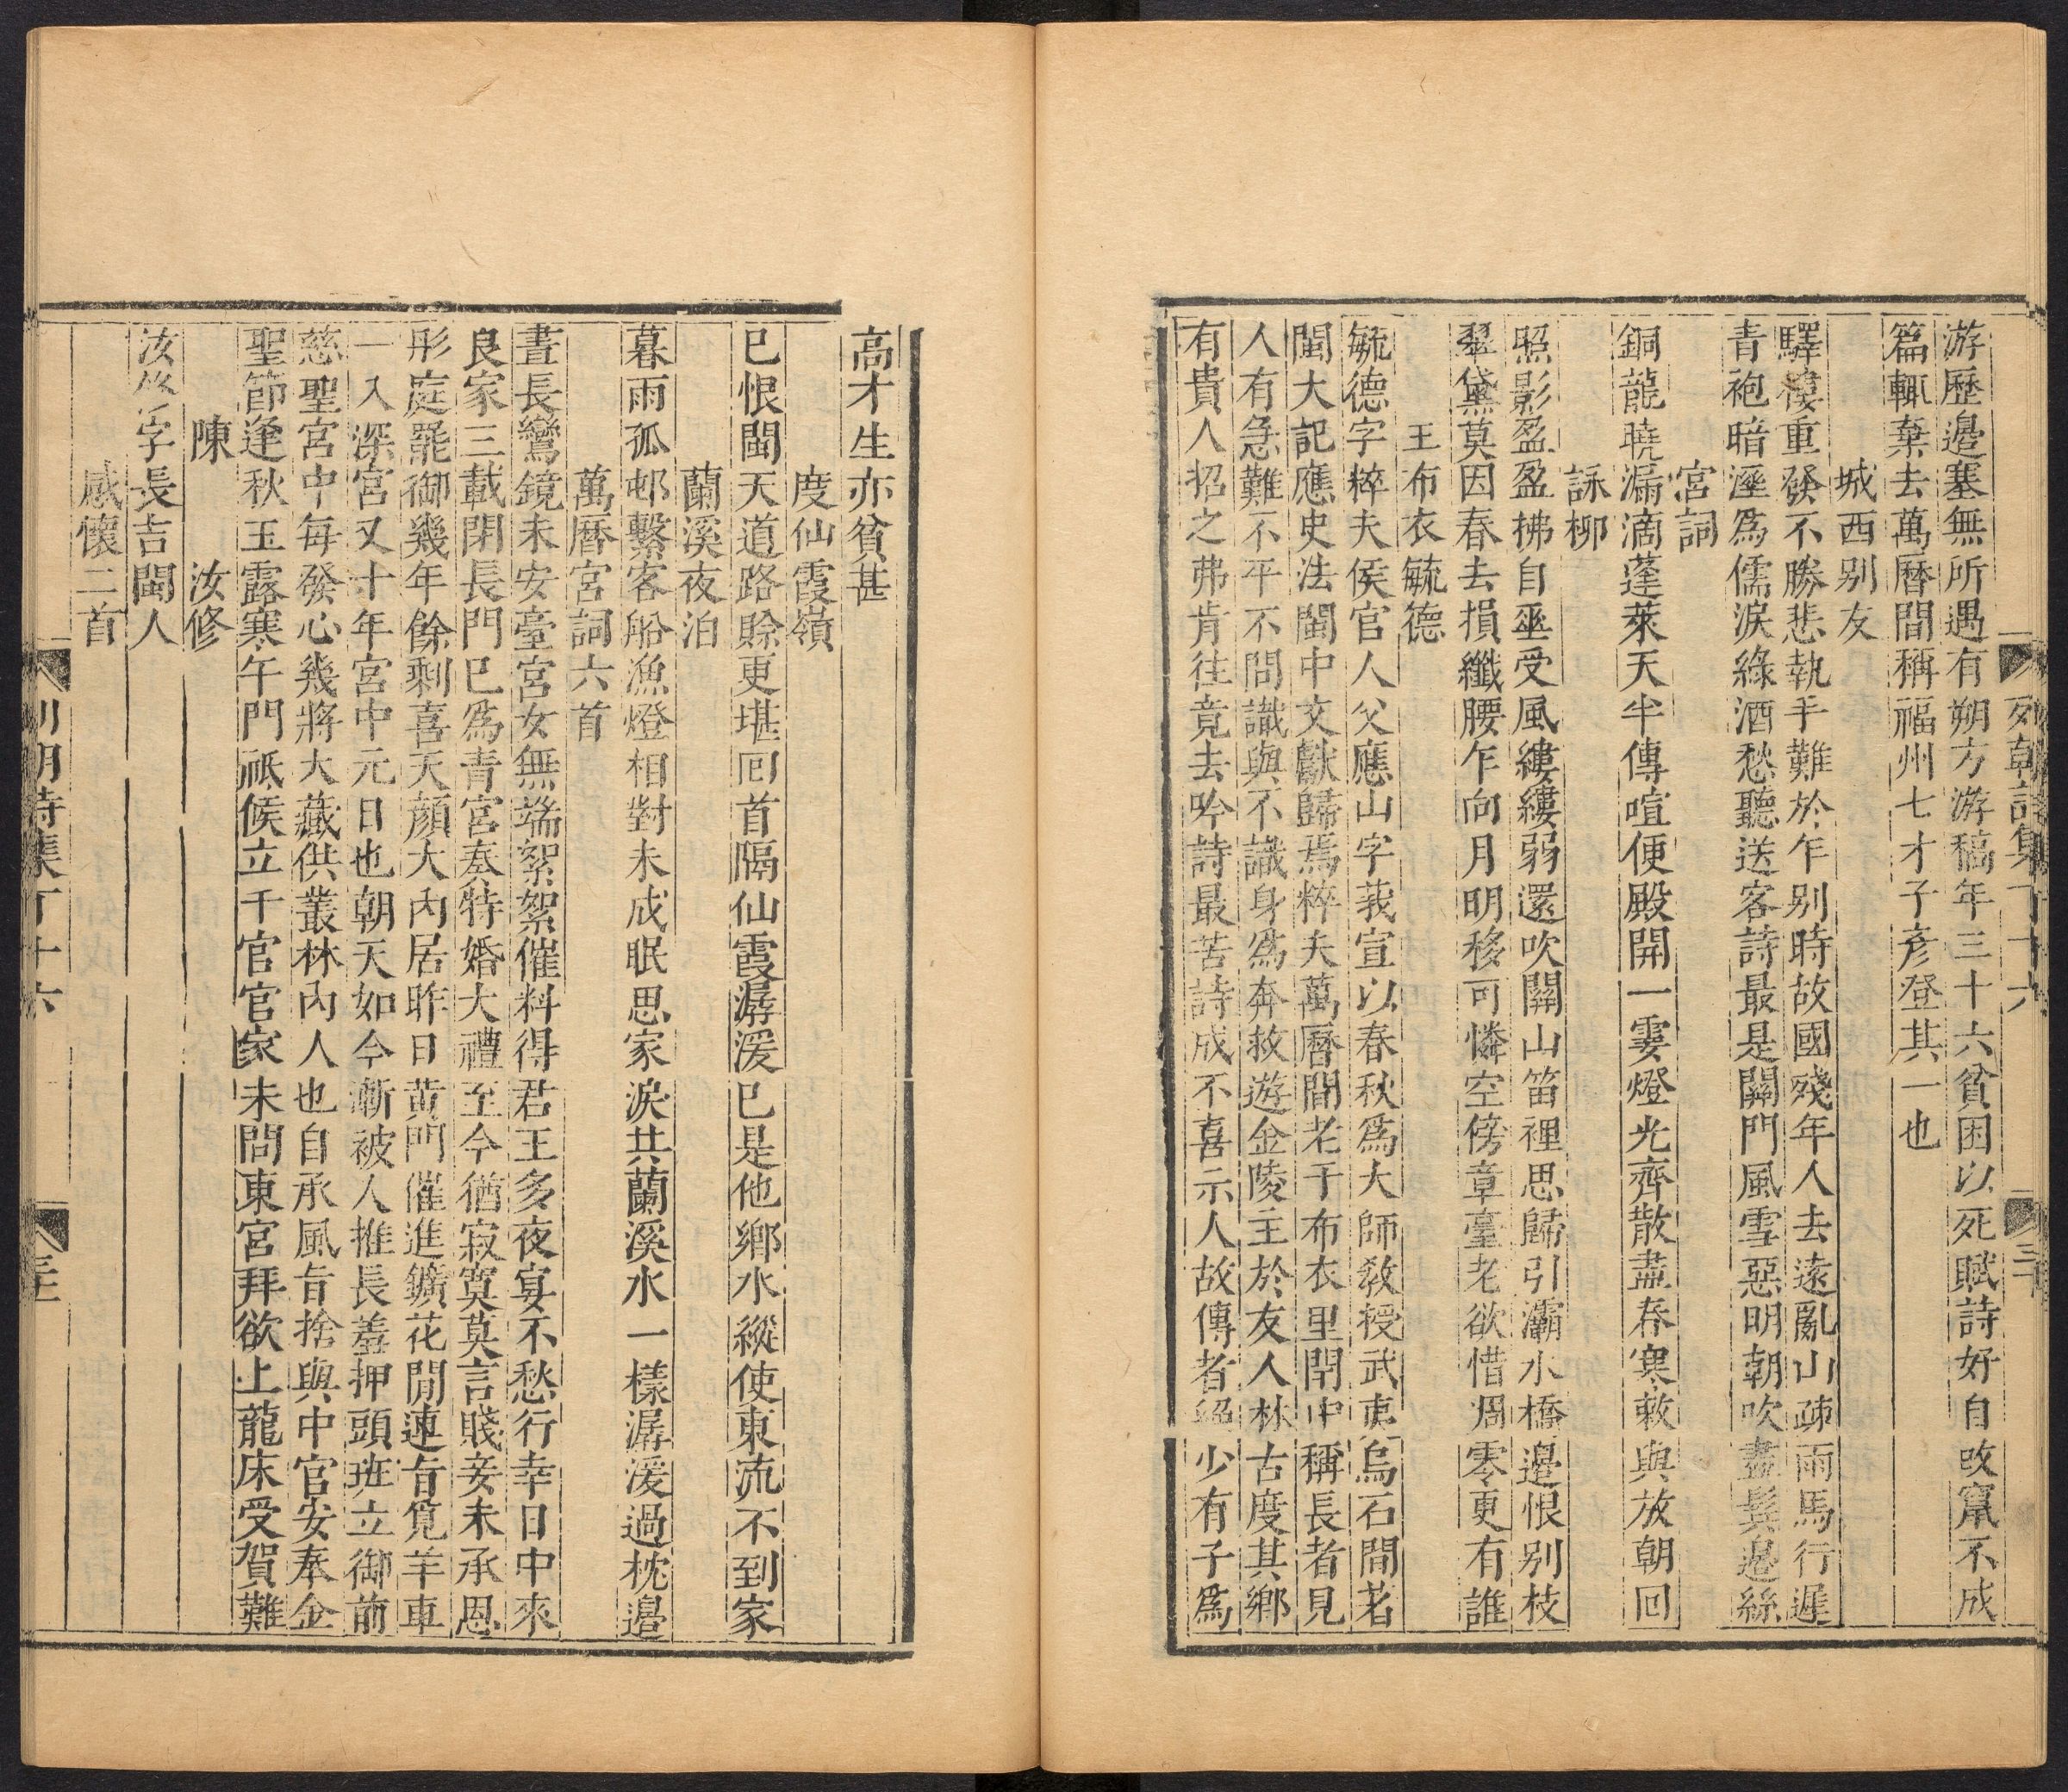 列朝詩集丁十六
三十
游歷邊塞無所遇有朔方游稿年三十六貧困以死賦詩好自改竄不成
篇輒棄去萬曆間稱福州七才子彥登其一也
城西别友
驛樓重發不勝悲執手難於乍别時故國殘年人去遠亂山疎雨馬行遲
青袍暗溼爲儒淚綠酒愁聽送客詩最是關門風雪惡明朝吹盡鬂邊絲
宮詞
銅龍曉漏滴蓬萊天半傳喧便殿開一霎燈光齊散盡春寒敕與放朝回
詠柳
照影盈盈拂自垂受風縷縷弱還吹關山笛裡思歸引灞水橋邊恨别枝
翠黛莫因春去損纖腰乍向月明移可憐空傍章臺老欲惜凋零更有誰
王布衣毓德
毓德字粹夫侯官人父應山字莪宣以春秋爲大師敎授武夷烏石間著
閩大記應史法閩中文獻歸焉粹夫萬曆間老于布衣里閈中稱長者見
人有急難不平不問識與不識身爲奔救遊金陵主於友人林古度其鄉
有貴人招之弗肯往竟去吟詩最苦詩成不喜示人故傳者絕少有子爲
高才生亦貧甚
度仙霞嶺
已恨閩天道路賒更堪囘首隔仙霞潺湲已是他鄉水縱使東流不到家
蘭溪夜泊
暮雨孤邨繫客船漁燈相對未成眠思家淚共蘭溪水一樣潺湲過枕邊
萬曆宮詞六首
晝長鸞鏡未安臺宮女無端絮絮催料得君王多夜宴不愁行幸日中來
良家三載閉長門巳爲青宮奏特婚大禮至今猶寂寞莫言賤妾未承恩
彤庭罷御幾年餘剩喜天顏大內居昨日黃門催進鑛花間連旨覓羊車
一入深宮又十年宮中元日也朝天如今漸被人推長羞押頭班立御前
慈聖宮中每發心幾將大藏供叢林內人也自承風旨捨與中官安奉金
聖節逢秋玉露寒午門祗候立千官官家未問東宮拜欲上龍床受賀難
陳　汝修
汝修字長吉閩人
感懷二首
列朝詩集丁十六
三十一